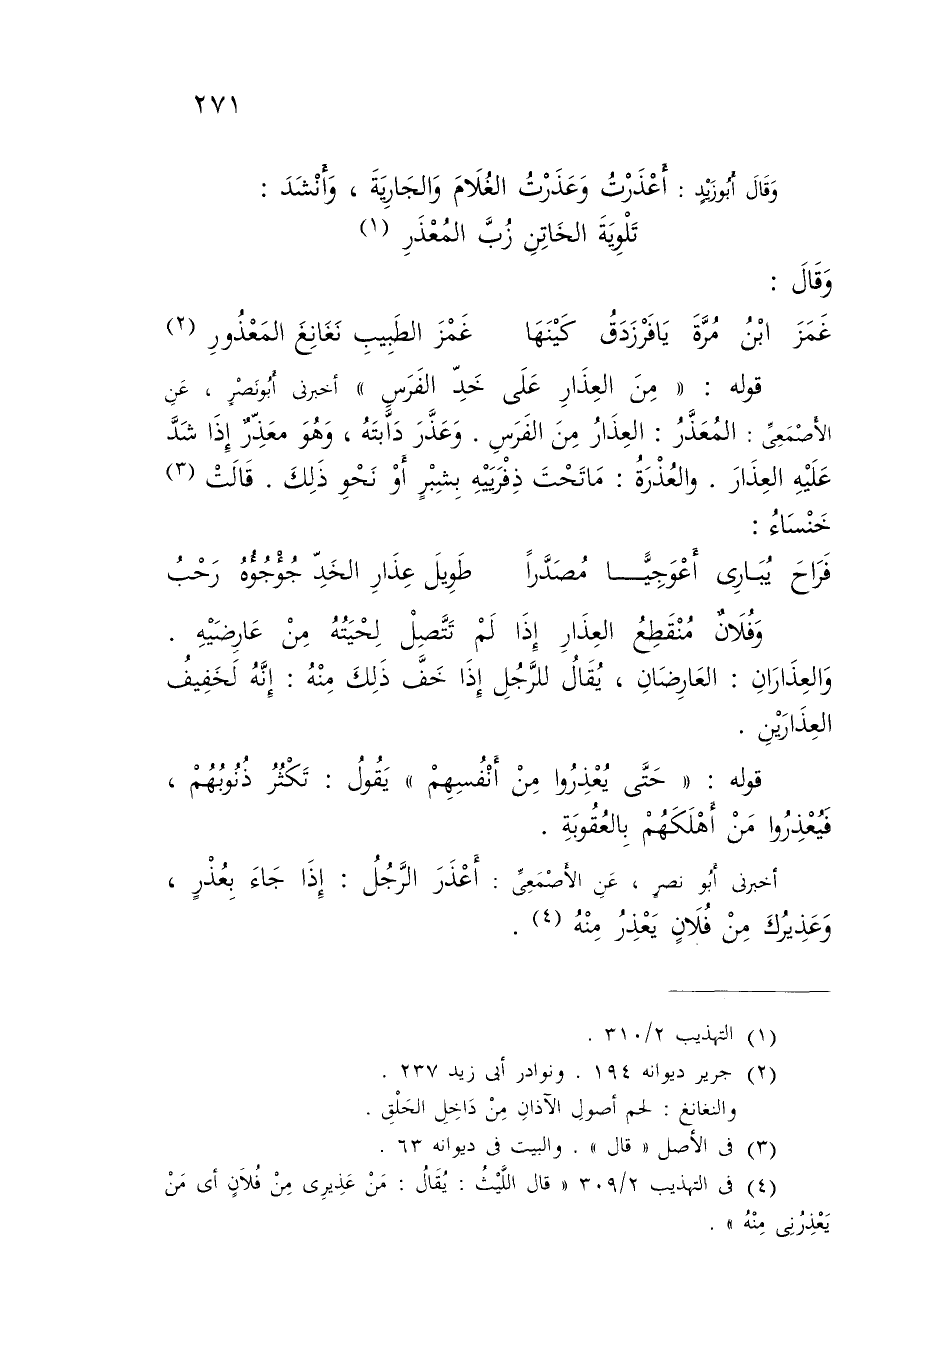 ٢٧١
وَقَالَ أَبُوزَيْدٍ : أَعْذَرْتُ وَعَذَرْتُ الغُلَامَ وَالجَارِيَةَ ، وَأَنْشَدَ :
تَلْوِيَةَ الخَاتِنِ زُبَّ المُعْذَرِ (١)
وَقَالَ :
غَمَزَ ابْنُ مُرَّةَ يَافَرْزَدَقُ كَيْنَهَا غَمْزَ الطَبِيبِ نَغَانِغَ المَعْذُورِ (٢)
قوله : « مِنَ العِذَارِ عَلَى خَدِّ الفَرَسِ » أخبرنى أَبُونَصْرٍ ، عَنِ
الأَصْمَعِىِّ : المُعَذَّرُ : العِذَارُ مِنَ الفَرَسِ . وَعَذَّرَ دَابَّتَهُ ، وَهُوَ معَذِّرٌ إِذَا شَدَّ
عَلَيْهِ العِذَارَ . والعُذْرَةُ : مَاتَحْتَ ذِفْرَيَيْهِ بِشِبْرٍ أَوْ نَحْوِ ذَلِكَ . قَالَتْ (٣)
خَنْسَاءُ :
فَرَاحَ يُبَارِى أَعْوَجِيًّا مُصَدَّراً طَوِيلَ عِذَارِ الخَدِّ جُؤْجُؤُهُ رَحْبُ
وَفُلَانٌ مُنْقَطِعُ العِذَارِ إِذَا لَمْ تَتَّصِلْ لِحْيَتُهُ مِنْ عَارِضَيْهِ .
وَالعِذَارَانِ : العَارِضَانِ ، يُقَالُ للرَّجُلِ إِذَا خَفَّ ذَلِكَ مِنْهُ : إِنَّهُ لَخَفِيفُ
العِذَارَيْنِ .
قوله : « حَتَّى يُعْذِرُوا مِنْ أَنْفُسِهِمْ » يَقُولُ : تَكْثُرُ ذُنُوبُهُمْ ،
فَيُعْذِرُوا مَنْ أَهْلَكَهُمْ بِالعُقُوبَةِ .
أخبرنى أَبُو نصرٍ ، عَنِ الأَصْمَعِىِّ : أَعْذَرَ الرَّجُلُ : إِذَا جَاءَ بِعُذْرٍ ،
وَعَذِيرُكَ مِنْ فُلَانٍ يَعْذِرُ مِنْهُ (٤) .
(١) التهذيب ٣١٠/٢ .
(٢) جرير ديوانه ١٩٤ . ونوادر أبى زيد ٢٣٧ .
والنغانغ : لحم أصولِ الآذانِ مِنْ دَاخِلِ الحَلْقِ .
(٣) فى الأصل « قال » . والبيت فى ديوانه ٦٣ .
(٤) فى التهذيب ٣٠٩/٢ « قال اللَّيْثُ : يُقَالُ : مَنْ عَذِيرِى مِنْ فُلَانٍ أى مَنْ
يَعْذِرُنِى مِنْهُ » .